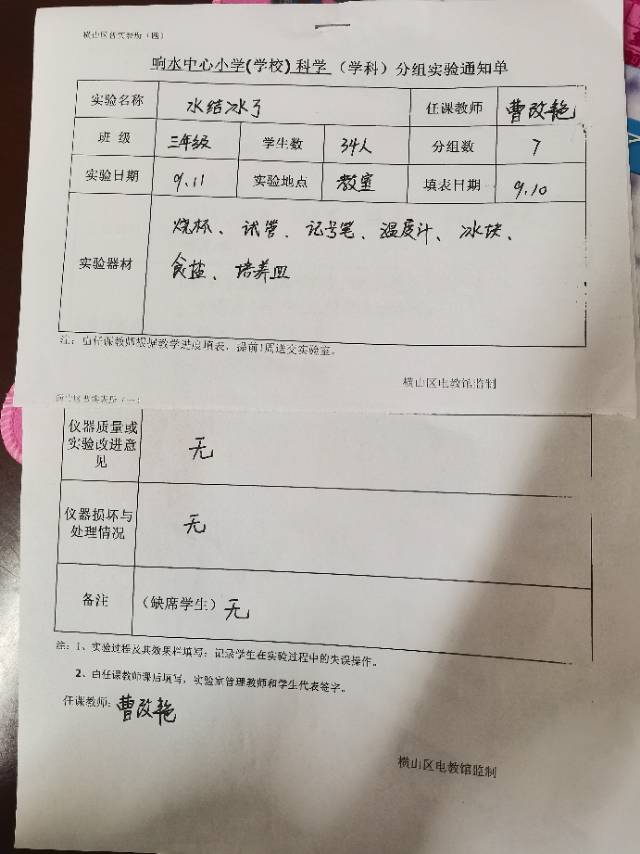 响水中心小学(学校)科学（学科）分组实验通知单
实验名称 水结冰了 任课教师 曹改艳
班 级 三年级 学生数 34人 分组数 7
实验日期 9.11 实验地点 教室 填表日期 9.10
实验器材 烧杯、试管、记号笔、温度计、冰块、
食盐、培养皿
注：由任课教师根据教学进度填表，提前1周送交实验室。
横山区电教馆监制
仪器质量或
实验改进意
见
无
仪器损坏与
处理情况
无
备注 （缺席学生）无
注：1、实验过程及其效果栏填写：记录学生在实验过程中的失误操作。
2、由任课教师课后填写，实验室管理教师和学生代表签字。
任课教师：曹改艳
横山区电教馆监制